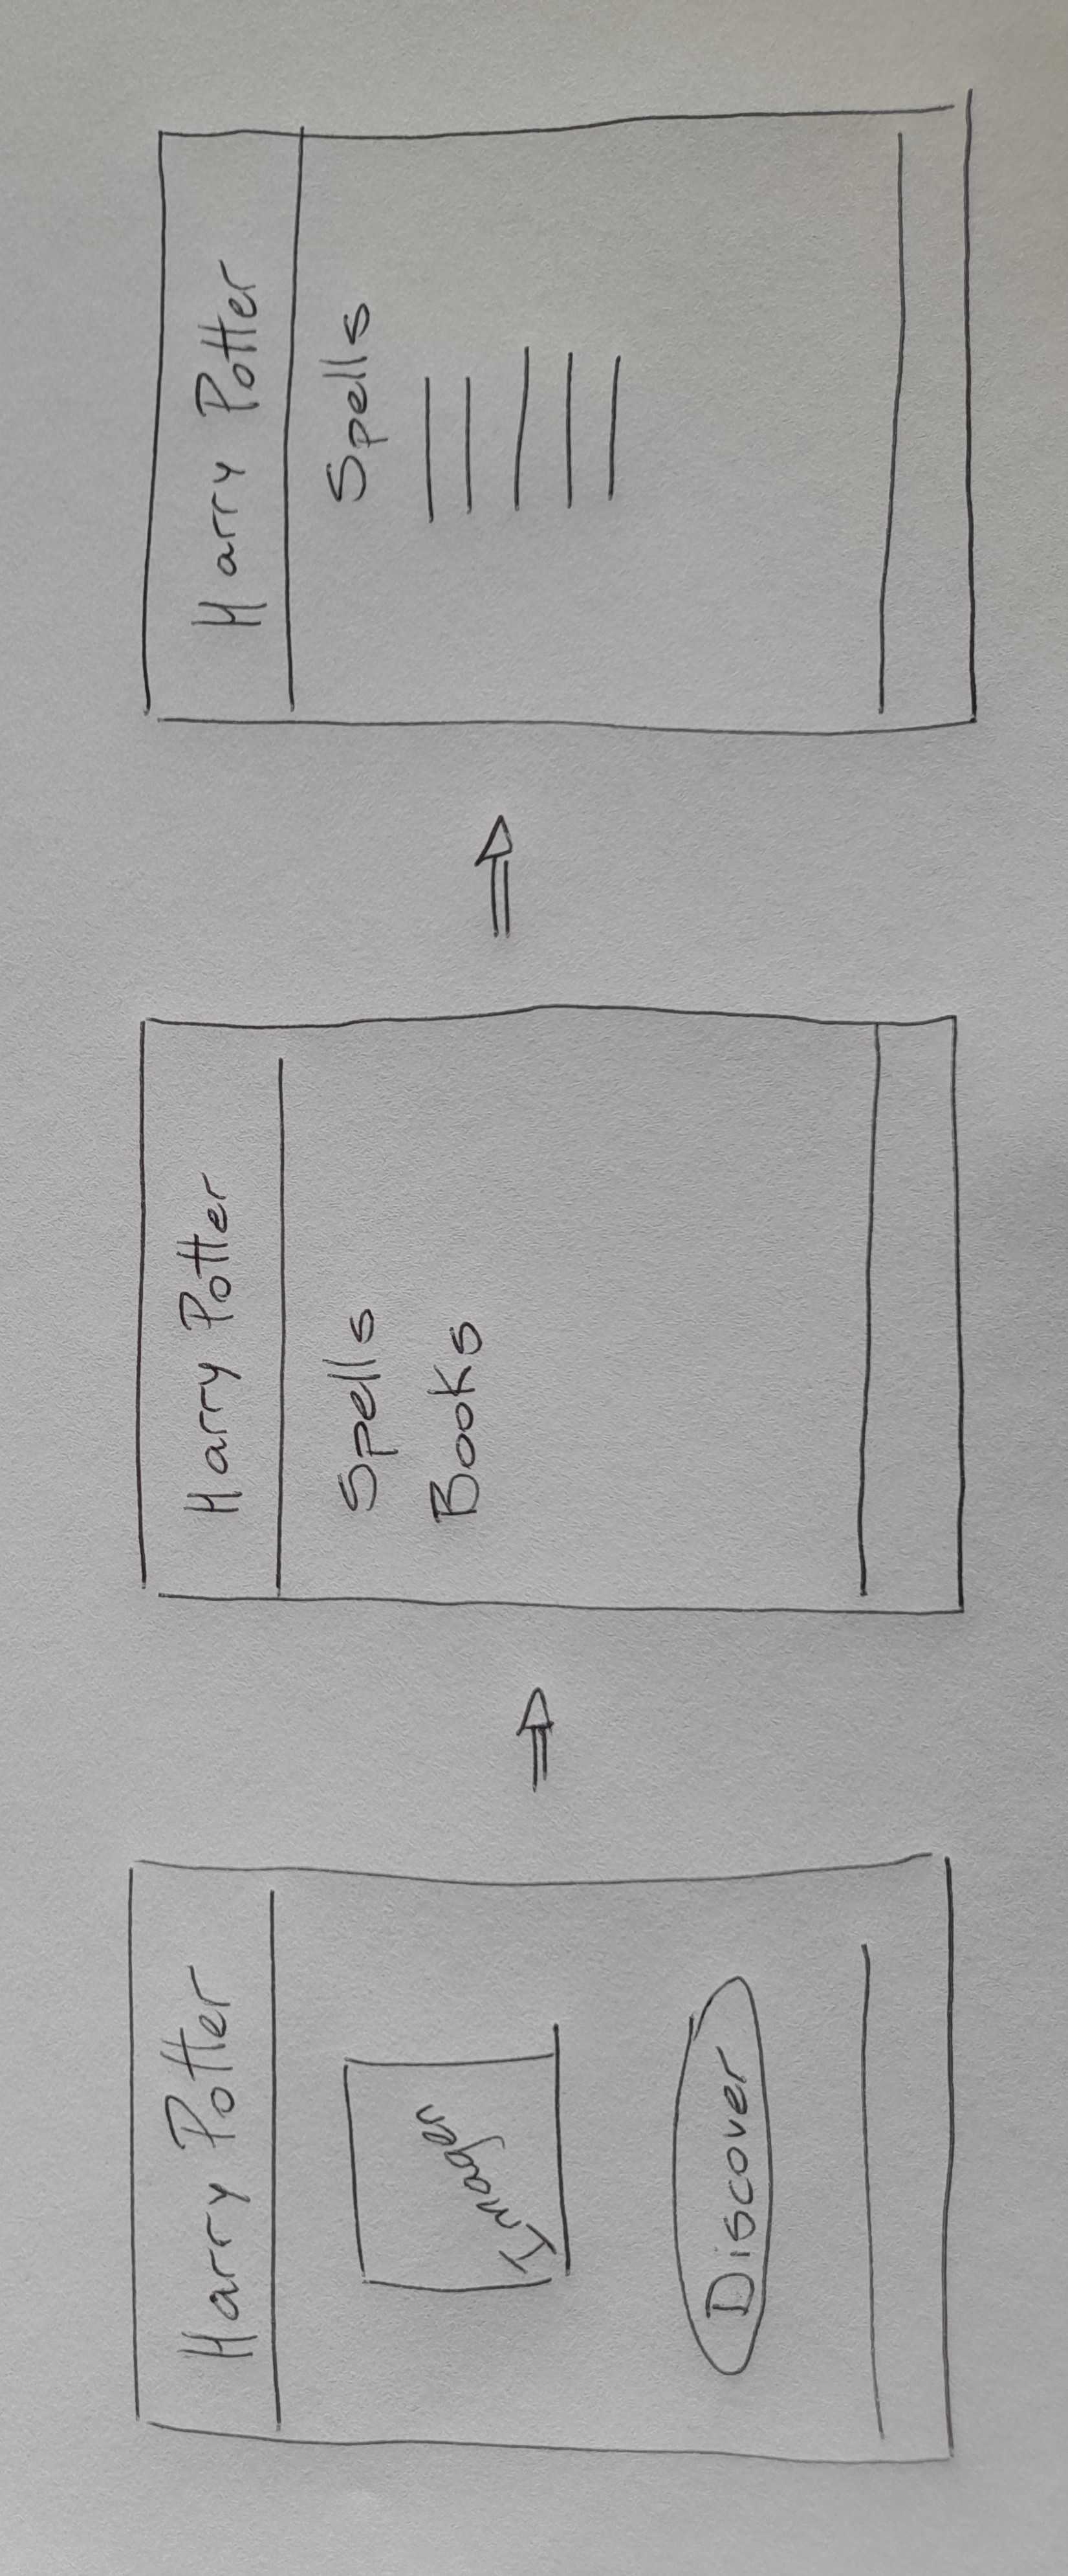 Harry Potter
Imagen
Discover
Harry Potter
Spells
Books
Harry Potter
Spells